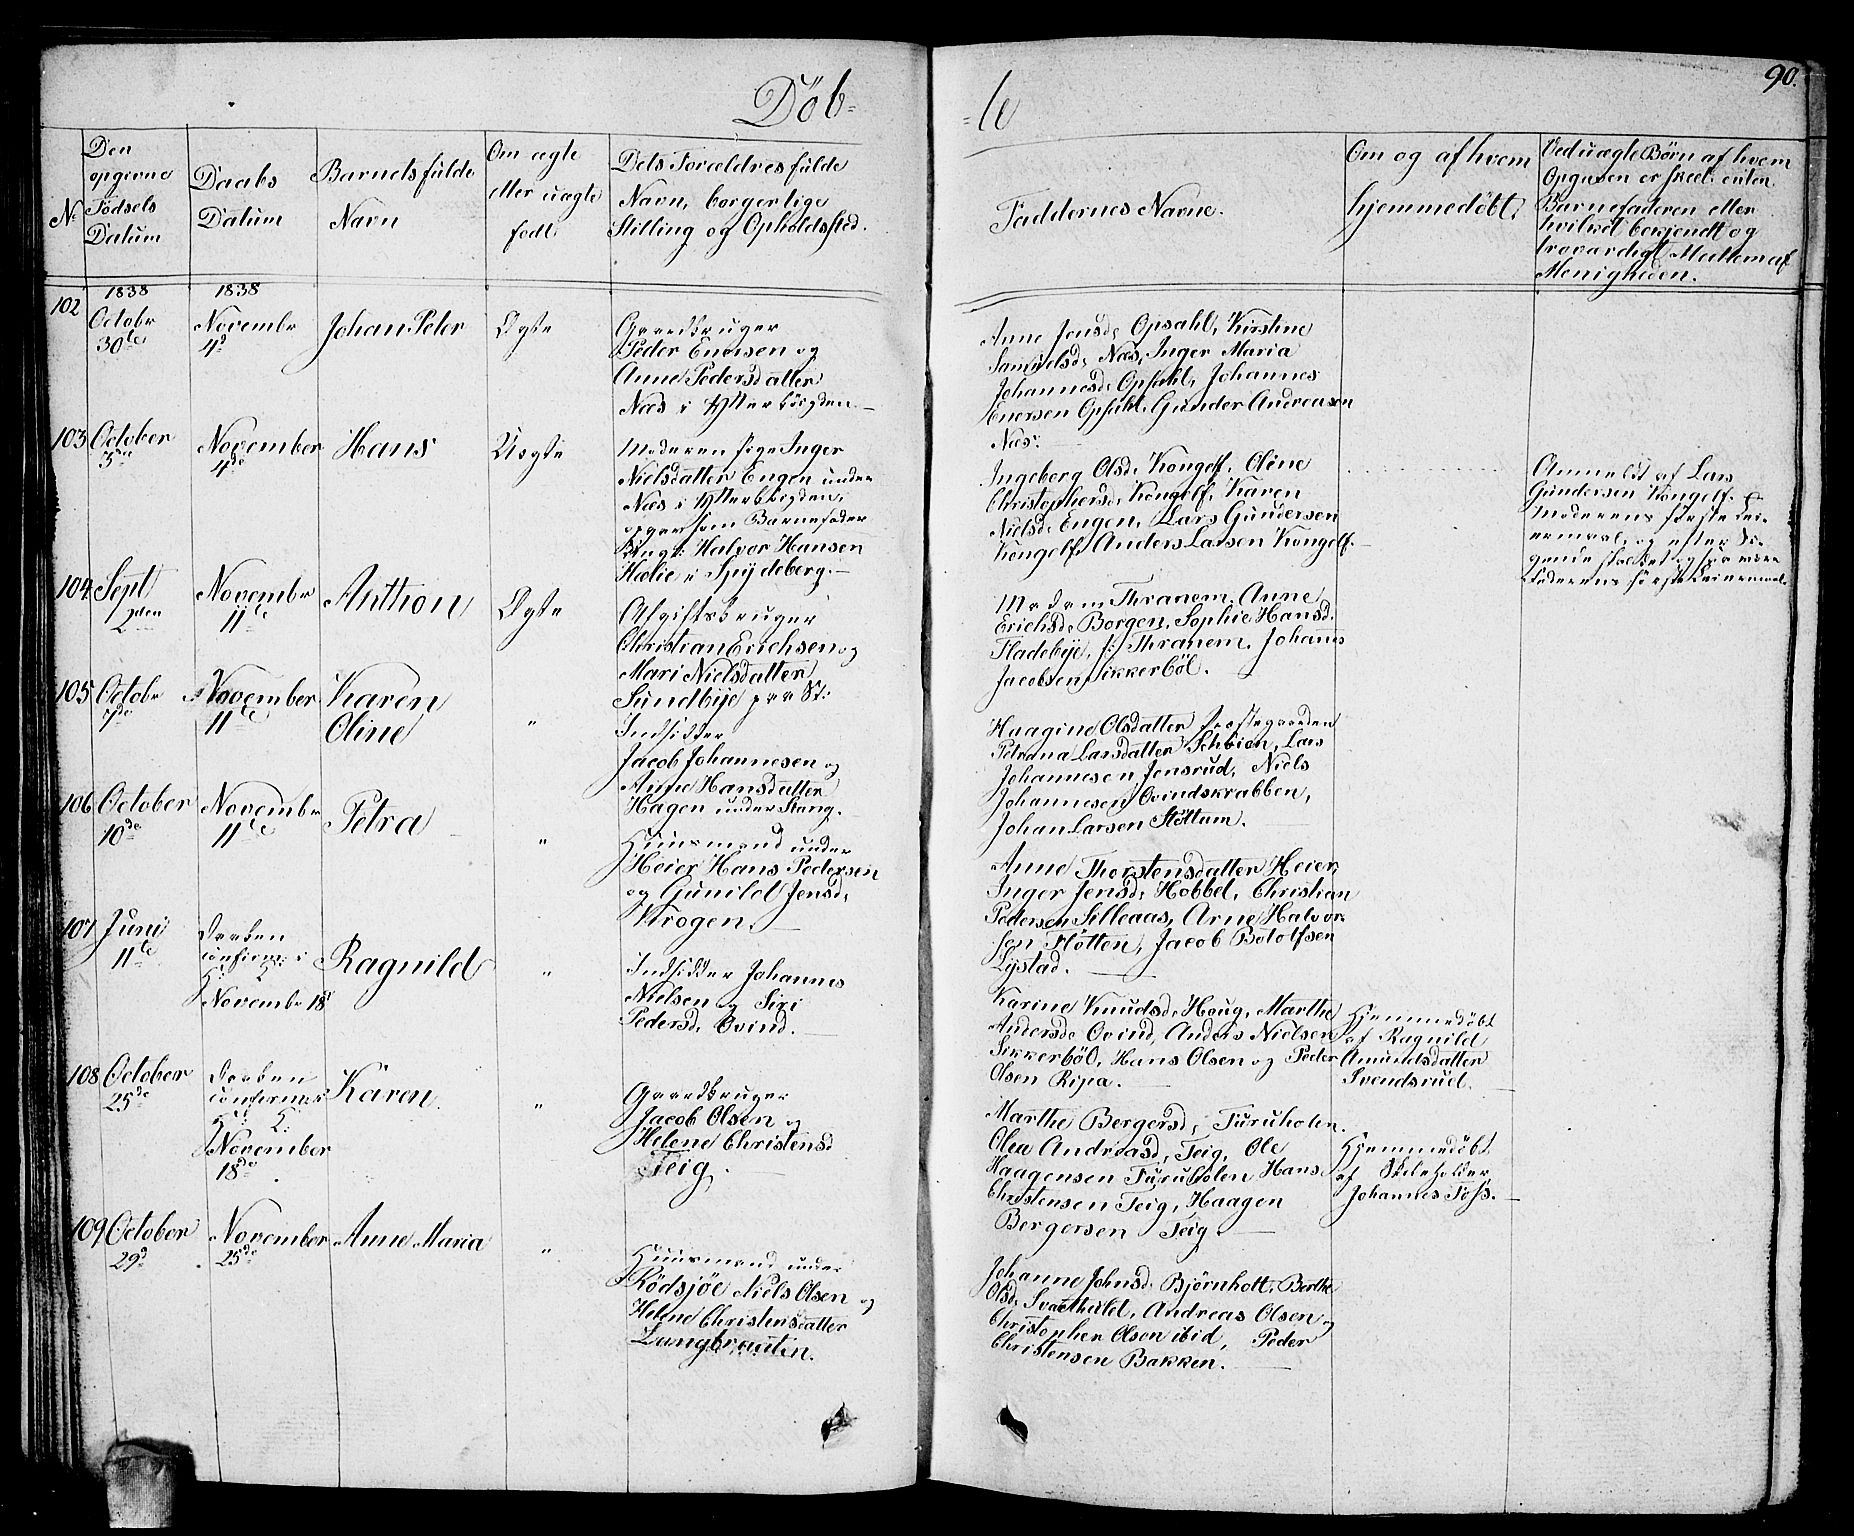 90.
Döb=
=te
No
Den
opgivne
Födsels
Datum
Daabs
Datum
Barnets fulde
Navn
Om ægte
eller uægte
födt.
Dets Forældres fulde
Navn, borgerlige
Stilling og Opholdssted.
Faddernes Navne.
Om og af hvem
hjemmedöbt.
Ved uægte Börn af hvem
Opgiven er skeet: enten
Barnefaderen eller
hvilket bekjendt og
troværdigt Medlem af
Menigheden.
1838
1838
102
Octobr
30te
Novembr
4d
Johan Peter
Ægte
Gaardbruger
Peder Enersen og
Anne Pedersdatter
Næs i Ytterbögden.
Anne Jensd. Opsahl, Kirstine
Samuelsd. Næs, Inger Maria
Johannesd. Opsahl, Johannes
Enersen Opsahl, Gunder Andreasen
Næs.
103
October
3die
November
4de
Hans
Uægte
Moderen Pige Inger
Nielsdatter Engen under
Næs i Ytterbögden,
opger som Barnefader
Ungk: Halvor Hansen
Hælie i Spydeberg.
Ingeberg Olsd. Kongelf. Oline
Christophersd. Kongelf. Karen
Nielsd. Engen, Lars Gundersen
Kongelf. Anders Larsen Kongelf.
Anmeldt af Lars
Gundersen Kongelf. Er
Moderens förste Lei-
ermaal, og efter Si-
gende skal det ogsaa være
Faderens förste Leiermaal.
104
Sept
2den
Novembr
11te
Anthon
Ægte
Afgiftsbruger
Christian Erichsen og
Mari Nielsdatter
Sundbye paa St:
Madam Thranem. Anne
Erichsd. Borgen, Sophie Hansd.
Fladebye, Thranem. Johannes
Jacobsen Sikkerböl.
105
Octobr
7de
November
11te
Karen
Oline
"
Indsidder
Jacob Johannesen og
Anne Hansdatter
Hagen under Stang.
Haagine Olsdatter Præstegaarden
Petrana Larsdatter Schöien, Lars
Johannesen Jensrud, Niels
Johannesen Ovindskrabben,
Johan Larsen Slöttum.
106
October
10de
Novembr
11te
Petra
"
Huusmand under
Heier Hans Pedersen
og Gunild Jensd.
Krogen.
Anne Thorstensdatter Heier
Inger Jensd. Hobbel, Christian
Pedersen Silleaas, Arne Halvor-
sen Flötten, Jacob Bololfsen
Lystad.
107
Juni
11te
Daaben
confirm: i
H: K:
Novembr 18
Ragnild
"
Indsidder Johannes
Nielsen og Siri
Pedersd. Ovind.
Karine Knudsd. Houg, Marthe
Andersd. Ovind, Anders Nielsen
Sikkerböl, Hans Olsen og Peder
Olsen Ripa.
Hjemmedöbt
af Ragnild
Amundsdatter
Svendsrud.
108
October
25de
Daaben
confirmer
H: K:
November
18de
Karen
"
Gaardbruger
Jacob Olsen og
Helene Christensd
Teig.
Marthe Bergersd. Furuholen.
Olea Andreasd. Teig, Ole
Haagensen Furuholen Hans
Christensen Teig, Haagen
Bergersen Teig
Hjemmedöbt
af Skoleholder
Johannes Foss.
109
October
29d
November
25de
Anne Maria
"
Huusmand under
Rödsjöe Niels Olsen og
Helene Christensdatter
Langbrauten.
Johanne Johnsd. Björnholt, Berthe
Olsd. Svarthuld, Andreas Olsen og
Christopher Olsen ibid, Peder
Christensen Bakken.